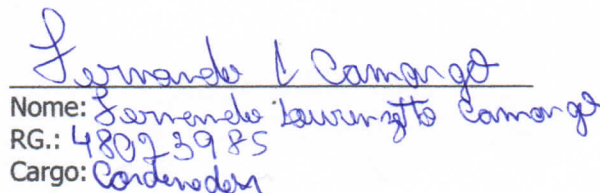 Fernando L Camargo
Nome: Fernando Lourenzetto Camargo
RG.: 48023985
Cargo: Cordenador